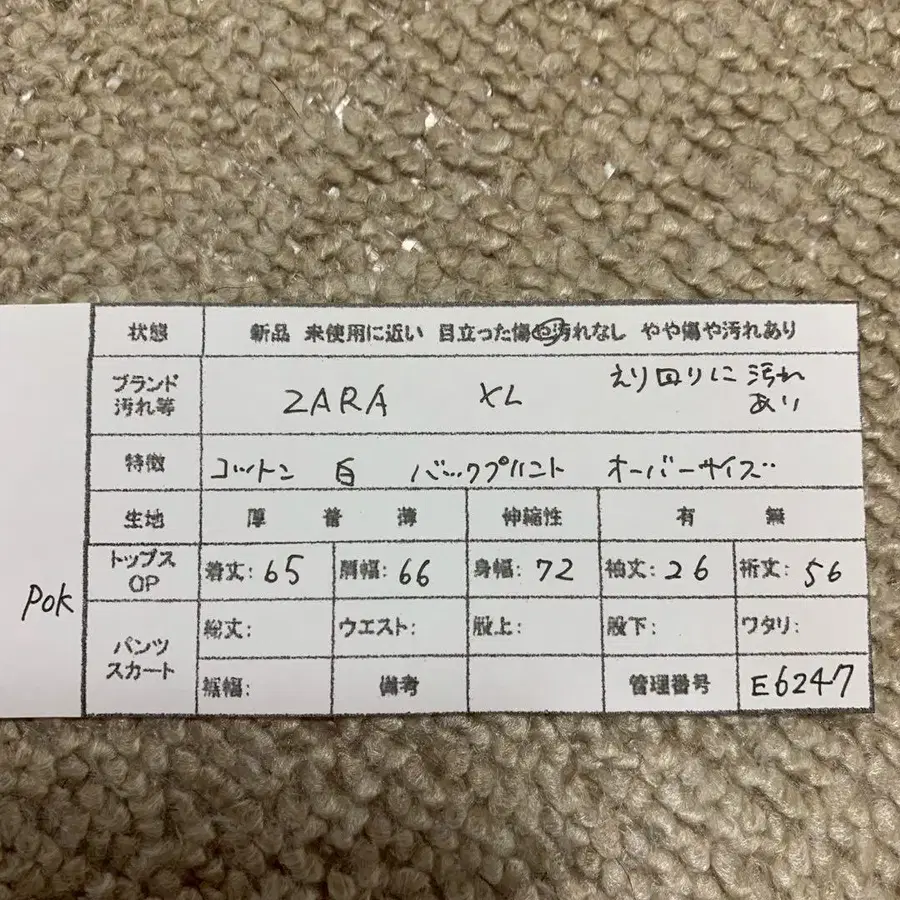 状態 新品 未使用に近い 目立った傷や汚れなし やや傷や汚れあり
ブランド
汚れ等
ZARA XL えり回りに汚れ
あり
特徴 コットン 白 バックプリント オーバーサイズ
生地 厚 普 薄 伸縮性 有 無
トップス
OP
着丈:65 肩幅:66 身幅:72 袖丈:26 裄丈:56
Pok
パンツ
スカート
総丈: ウエスト: 股上: 股下: ワタリ:
裾幅: 備考 管理番号 E6247